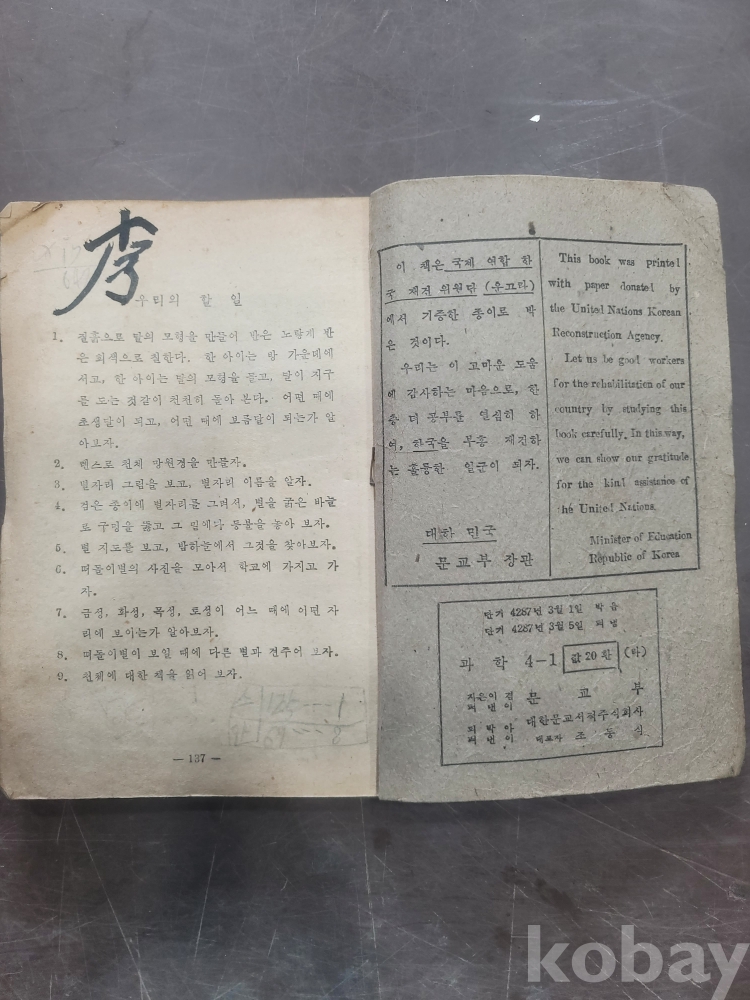 李
우리의 할 일
1. 찰흙으로 달의 모형을 만들어 반은 노랗게 반
은 회색으로 칠한다. 한 아이는 방 가운데에
서고, 한 아이는 달의 모형을 들고, 달이 지구
를 도는 것같이 천천히 돌아 본다. 어떤 때에
초생달이 되고, 어떤 때에 보름달이 되는가 알
아보자.
2. 렌스로 천체 망원경을 만들자.
3. 별자리 그림을 보고, 별자리 이름을 알자.
4. 검은 종이에 별자리를 그려서, 별을 굵은 바늘
로 구멍을 뚫고 그 밑에 등불을 놓아 보자.
5. 별 지도를 보고, 밤하늘에서 그것을 찾아보자.
6. 떠돌이별의 사진을 모아서 학교에 가지고 가
자.
7. 금성, 화성, 목성, 토성이 어느 때에 어떤 자
리에 보이는가 알아보자.
8. 떠돌이별이 보일 때에 다른 별과 견주어 보자.
9. 천체에 대한 책을 읽어 보자.
— 137 —
이 책은 국제 연합 한
국 재건 위원단 (운끄라)
에서 기증한 종이로 박
은 것이다.
우리는 이 고마운 도움
에 감사하는 마음으로, 한
층 더 공부를 열심히 하
여, 한국을 부흥 재건하
는 훌륭한 일군이 되자.
대한 민국
문교부 장관
This book was printed
with paper donated by
the United Nations Korean
Reconstruction Agency.
Let us be good workers
for the rehabilitation of our
country by studying this
book carefully. In this way,
we can show our gratitude
for the kind assistance of
the United Nations.
Minister of Education
Republic of Korea
단기 4287년 3월 1일 박음
단기 4287년 3월 5일 펴냄
과 학 4-1 값 20 환 (타)
지은이 겸
펴낸이 문 교 부
되박아
펴낸이 대한문교서적주식회사
대표자 조 동 식
kobay